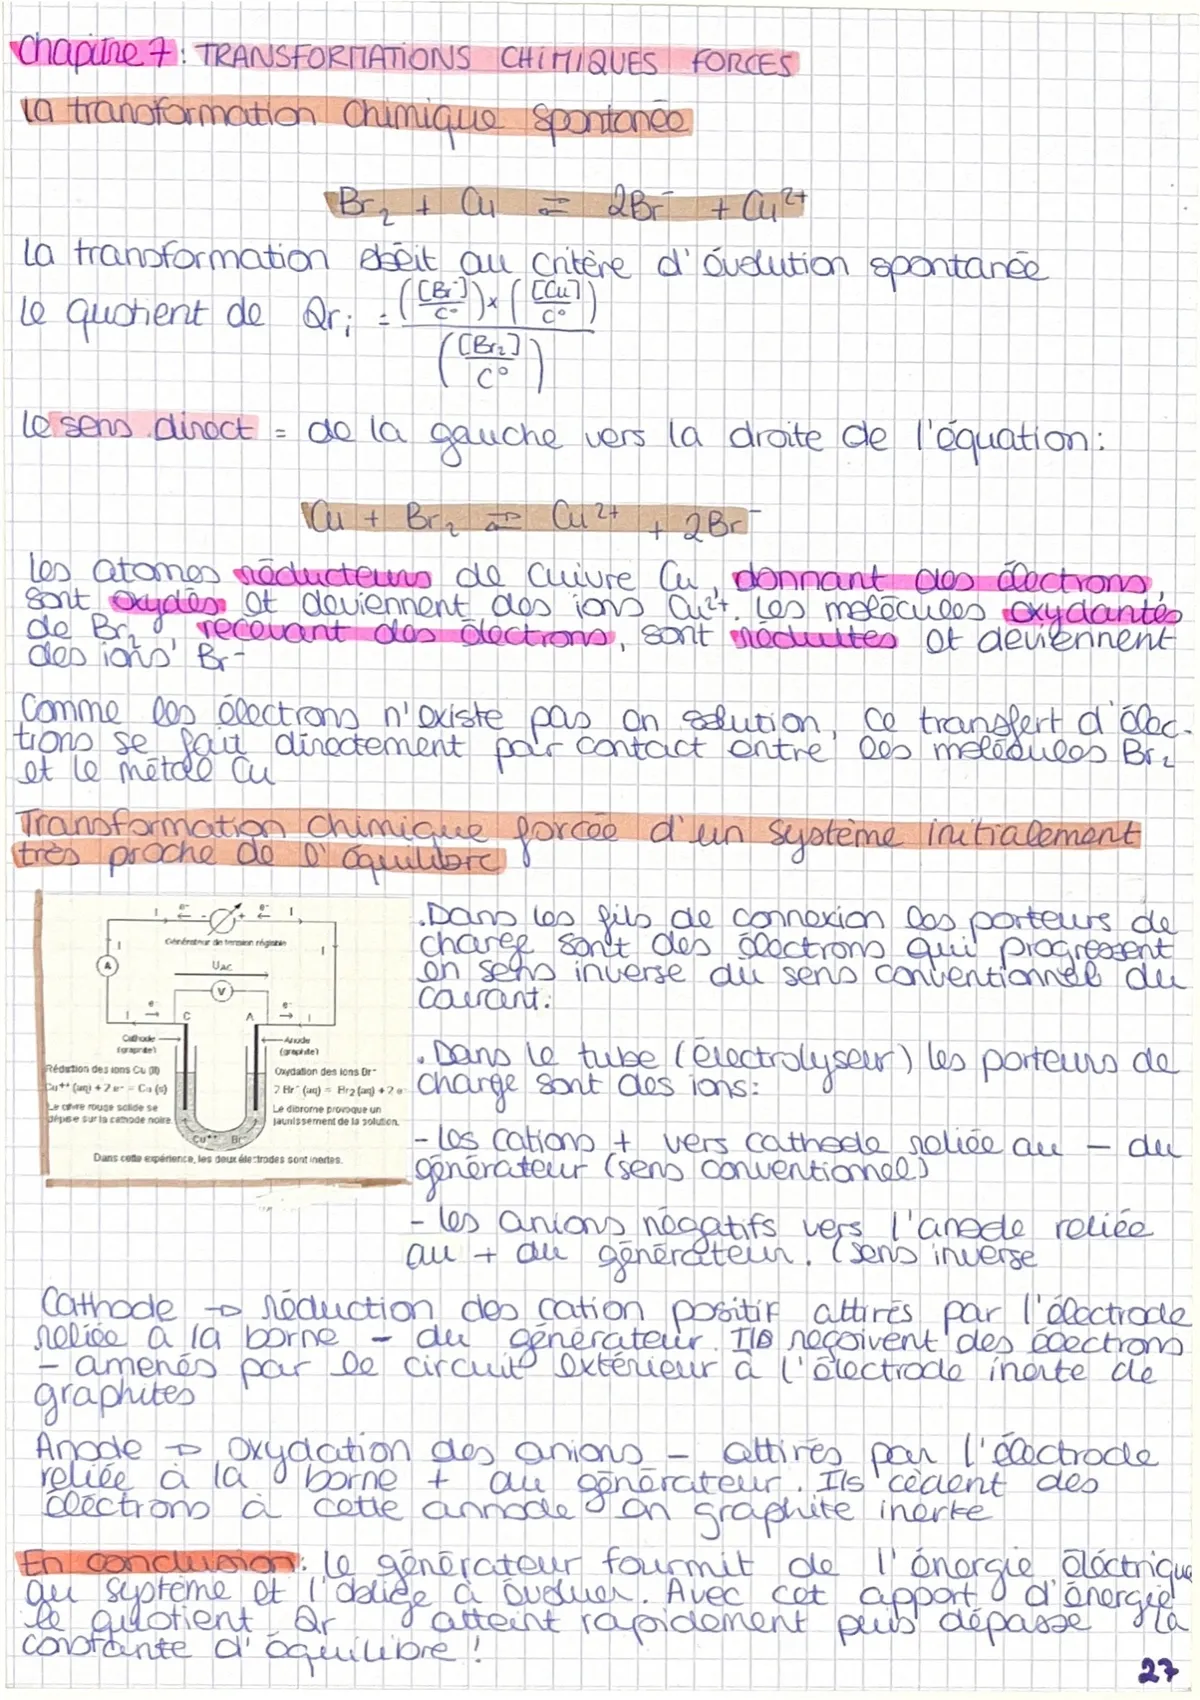 Chapitre 7 : TRANSFORMATIONS CHIMIQUES FORCES
La transformation Chimique Spontanée
Br₂ + Cu ⇌ 2Br⁻ + Cu²⁺
La transformation obéit au critère d'évolution spontanée
le quotient de Qrᵢ = (([Br⁻]/C°) × ([Cu]/C°)) / ([Br₂]/C°)
le sens direct = de la gauche vers la droite de l'équation :
Cu + Br₂ ⇌ Cu²⁺ + 2Br⁻
Les atomes réducteurs de cuivre Cu, donnant des électrons,
sont oxydés et deviennent des ions Cu²⁺. Les molécules oxydantes
de Br₂, recevant des électrons, sont réduites et deviennent
des ions Br⁻
Comme les électrons n'existe pas en solution, ce transfert d'élec-
trons se fait directement par contact entre les molécules Br₂
et le métale Cu
Transformation chimique forcée d'un système initialement
très proche de l'équilibre
I e⁻ - + e⁻ I
Générateur de tension réglable
I I
A
UAC
V
e⁻ e⁻
I C A I
Cathode
(graphite)
Anode
(graphite)
Réduction des ions Cu (II)
Cu⁺⁺ (aq) + 2 e⁻ = Cu (s)
Le cuivre rouge solide se
dépose sur la cathode noire
Oxydation des ions Br⁻
2 Br⁻ (aq) = Br₂ (aq) + 2 e⁻
Le dibrome provoque un
jaunissement de la solution.
Cu⁺⁺ Br⁻
Dans cette expérience, les deux électrodes sont inertes.
.Dans les fils de connexion les porteurs de
charge sont des électrons qui progressent
en sens inverse du sens conventionnel du
courant.
.Dans le tube (électrolyseur) les porteurs de
charge sont des ions :
- les cations + vers cathode reliée au - du
générateur (sens conventionnel)
- les anions négatifs vers l'anode reliée
au + du générateur. (sens inverse
Cathode → réduction des cation positif attirés par l'électrode
reliée à la borne - du générateur. Ils reçoivent des électrons
- amenés par le circuit extérieur à l'électrode inerte de
graphites
Anode → oxydation des anions - attirés par l'électrode
reliée à la borne + du générateur. Ils cèdent des
électrons à cette annode en graphite inerte
En conclusion : Le générateur fournit de l'énergie électrique
au système et l'oblige à évoluer. Avec cet apport d'énergie
le quotient Qr atteint rapidement puis dépasse la
constante d'équilibre !
27